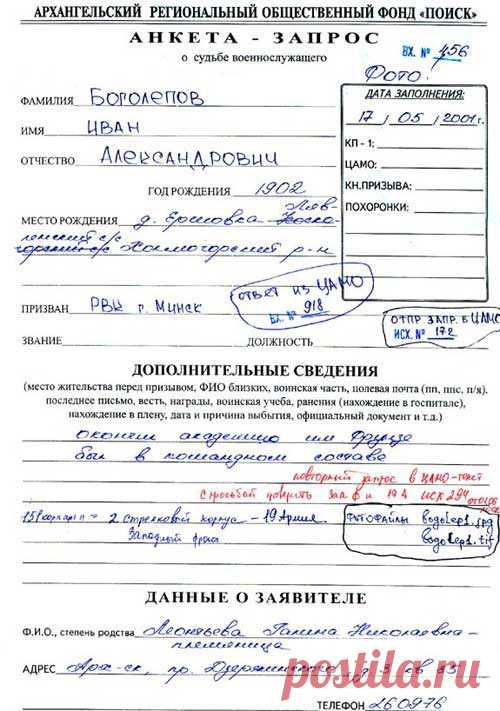 АРХАНГЕЛЬСКИЙ РЕГИОНАЛЬНЫЙ ОБЩЕСТВЕННЫЙ ФОНД «ПОИСК»
АНКЕТА - ЗАПРОС
о судьбе военнослужащего
ВХ. № 456
ФОТО!
ФАМИЛИЯ Боголепов
ИМЯ Иван
ОТЧЕСТВО Александрович
ГОД РОЖДЕНИЯ 1902
МЕСТО РОЖДЕНИЯ д. Ершовка
Холмогорский р-н
ПРИЗВАН РВК г. Минск
ЗВАНИЕ ДОЛЖНОСТЬ
ДАТА ЗАПОЛНЕНИЯ:
17 / 05 / 2001г.
КП - 1:
ЦАМО:
КН.ПРИЗЫВА:
ПОХОРОНКИ:
ОТВЕТ ИЗ ЦАМО
ВХ. № 918
ОТПР ЗАПР. В ЦАМО
ИСХ. № 172
ДОПОЛНИТЕЛЬНЫЕ СВЕДЕНИЯ
(место жительства перед призывом, ФИО близких, воинская часть, полевая почта (пп, ппс, п/я).
последнее письмо, весть, награды, воинская учеба, ранения (нахождение в госпитале),
нахождение в плену, дата и причина выбытия, официальный документ и т.д.)
окончил академию им Фрунзе
был в командном составе
повторный запрос в ЦАМО
с просьбой
2 стрелковый корпус - 19 Армия.
Западный фронт
ФОТОФАЙЛЫ bogolep1.jpg
bogolep1.tif
ДАННЫЕ О ЗАЯВИТЕЛЕ
Ф.И.О., степень родства Леонтьева Галина Николаевна -
племянница
АДРЕС Арх-ск, пр. Дзержинского, 3 кв 33
ТЕЛЕФОН 260976
postila.ru